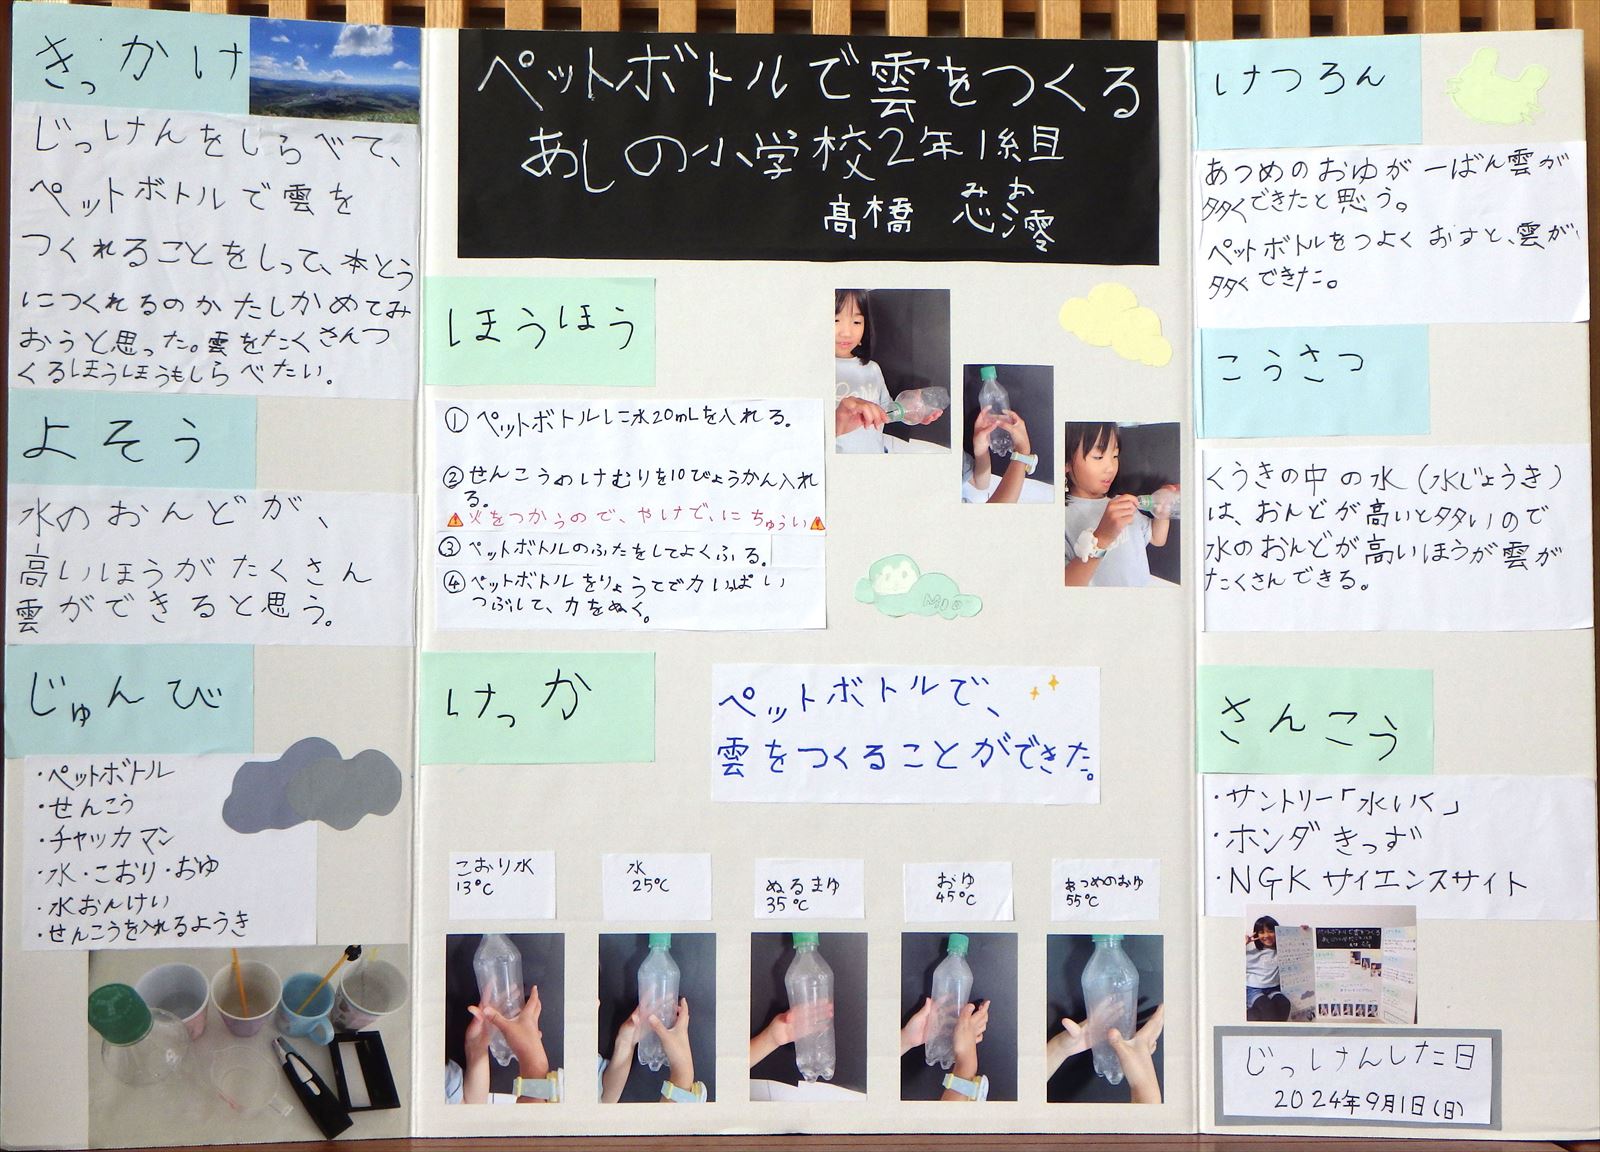 きっかけ
じっけんをしらべて、
ペットボトルで雲を
つくれることをしって、本とう
につくれるのかたしかめてみ
おうと思った。雲をたくさんつ
くるほうほうもしらべたい。
よそう
水のおんどが、
高いほうがたくさん
雲ができると思う。
じゅんび
・ペットボトル
・せんこう
・チャッカマン
・水・こおり・おゆ
・水おんけい
・せんこうを入れるようき
ペットボトルで雲をつくる
あしの小学校2年1組
高橋 芯澪
みお
ほうほう
①ペットボトルに水20mLを入れる。
②せんこうのけむりを10びょうかん入れ
る。
⚠火をつかうので、やけどにちゅうい⚠
③ペットボトルのふたをしてよくふる。
④ペットボトルをりょうてで力いっぱい
つぶして、力をぬく。
MIO
けっか
ペットボトルで、
雲をつくることができた。
こおり水
13℃
水
25℃
ぬるまゆ
35℃
おゆ
45℃
あつめのおゆ
55℃
けつろん
あつめのおゆが一ばん雲が
多くできたと思う。
ペットボトルをつよくおすと、雲が
多くできた。
こうさつ
くうきの中の水(水じょうき)
は、おんどが高いと多いので
水のおんどが高いほうが雲が
たくさんできる。
さんこう
・サントリー「水いく」
・ホンダきっず
・NGKサイエンスサイト
じっけんした日
2024年9月1日(日)